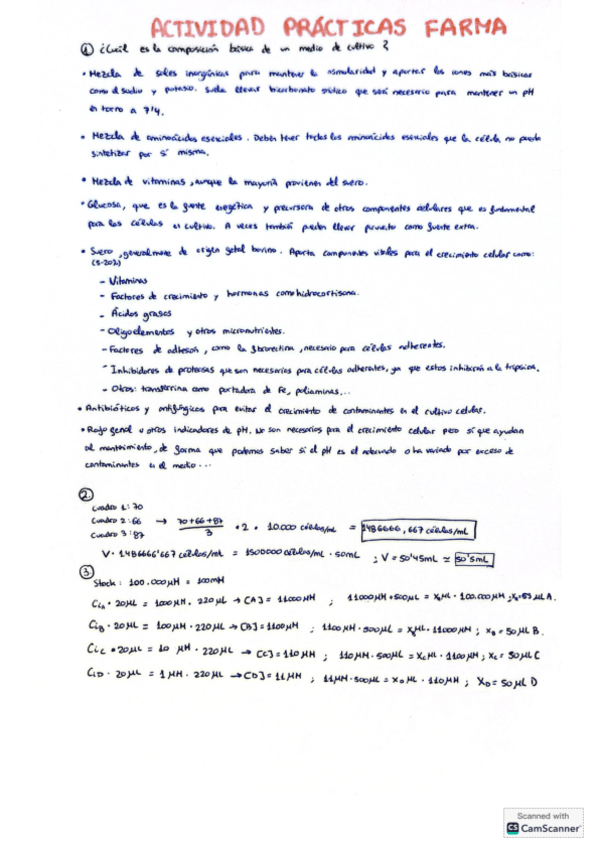 ACTIVIDAD PRÁCTICAS FARMA
① ¿Cuál es la composición básica de un medio de cultivo?
• Mezcla de sales inorgánicas para mantener la osmolaridad y aportar los iones más básicos
como el sodio y potasio. Suele llevar bicarbonato sódico que será necesario para mantener un pH
en torno a 7'4.
• Mezcla de aminoácidos esenciales. Deben tener todos los aminoácidos esenciales que la célula no pueda
sintetizar por sí misma.
• Mezcla de vitaminas, aunque la mayoría provienen del suero.
• Glucosa, que es la fuente energética y precursora de otros componentes celulares que es fundamental
para las células en cultivo. A veces también pueden llevar piruvato como fuente extra.
• Suero, generalmente de origen fetal bovino. Aporta componentes vitales para el crecimiento celular como:
(5-20%)
- Vitaminas
- Factores de crecimiento y hormonas como hidrocortisona.
- Ácidos grasos
- Oligoelementos y otros micronutrientes.
- Factores de adhesión, como la fibronectina, necesario para células adherentes.
- Inhibidores de proteasas que son necesarios para células adherentes, ya que estos inhibirán a la tripsina.
- Otros: transferrina como portadora de Fe, poliaminas,...
• Antibióticos y antifúngicos para evitar el crecimiento de contaminantes en el cultivo celular.
• Rojo fenol u otros indicadores de pH. No son necesarios para el crecimiento celular pero sí que ayudan
al mantenimiento, de forma que podemos saber si el pH es el adecuado o ha variado por exceso de
contaminantes en el medio...
②
Cuadro 1: 70
Cuadro 2: 66 → 70+66+87/3 • 2 • 10.000 células/mL = 1486666,667 células/mL
Cuadro 3: 87
V · 1486666'667 células/mL = 1500000 células/mL · 50mL ; V = 50'45mL ≃ 50'5mL
③
Stock: 100.000µM = 100mM
CiA · 20µL = 1000µM · 220µL → [A] = 11000µM ; 11000µM·500µL = XAµL · 100.000µM ; XA=55µL A.
CiB · 20µL = 100µM · 220µL → [B] = 1100µM ; 1100µM·500µL = XBµL · 11000µM ; XB = 50µL B.
CiC · 20µL = 10 µM · 220µL → [C] = 110µM ; 110µM·500µL = XCµL · 1100µM ; XC = 50µL C
CiD · 20µL = 1µM · 220µL → [D] = 11µM ; 11µM·500µL = XDµL · 110µM ; XD = 50µL D
Scanned with
CS CamScanner